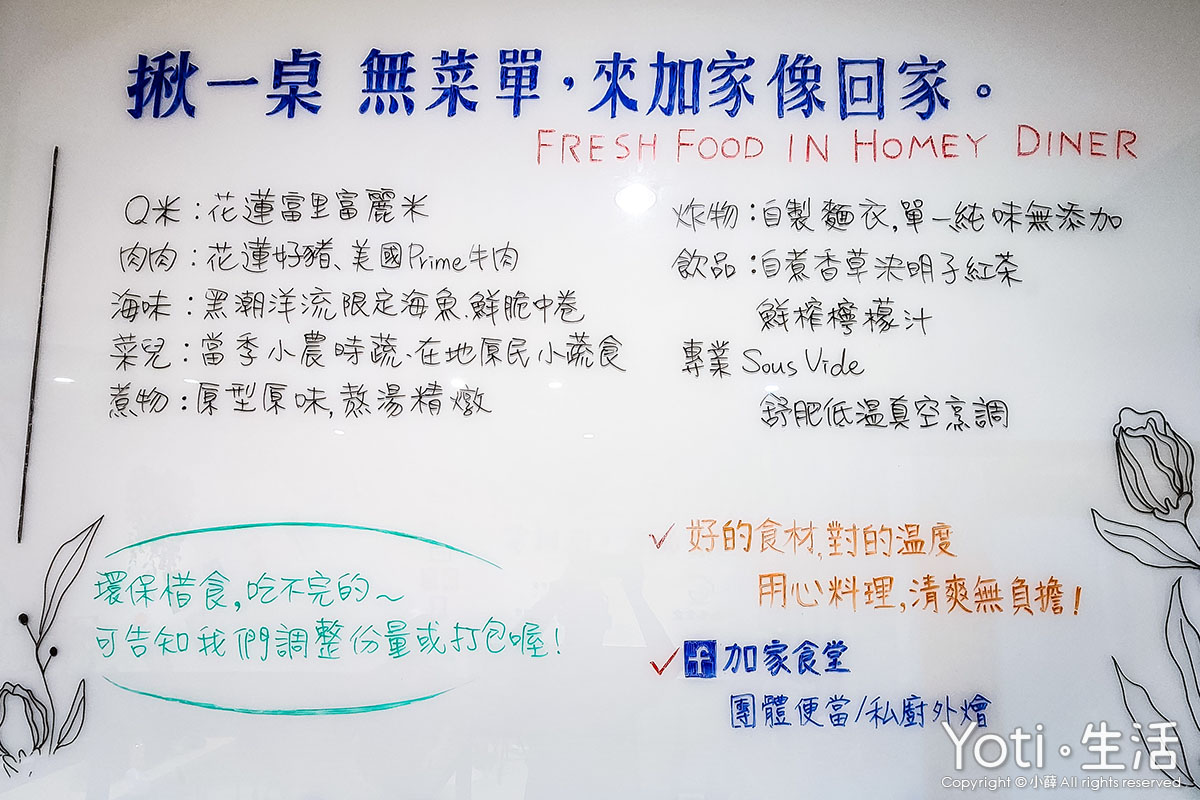 揪一桌 無菜單，來加家像回家。
FRESH FOOD IN HOMEY DINER
Q米：花蓮富里富麗米
肉肉：花蓮好豬、美國Prime牛肉
海味：黑潮洋流限定海魚、鮮脆中卷
菜兒：當季小農時蔬、在地原民小蔬食
煮物：原型原味，熬湯精燉
炸物：自製麵衣，單一純味無添加
飲品：自煮香草決明子紅茶
鮮榨檸檬汁
專業 Sous Vide
舒肥低温真空烹調
環保惜食，吃不完的～
可告知我們調整份量或打包喔！
✓ 好的食材，對的温度
用心料理，清爽無負擔！
✓ f 加家食堂
團體便當/私廚外燴
Yoti。生活
Copyright © 小薛 All rights reserved